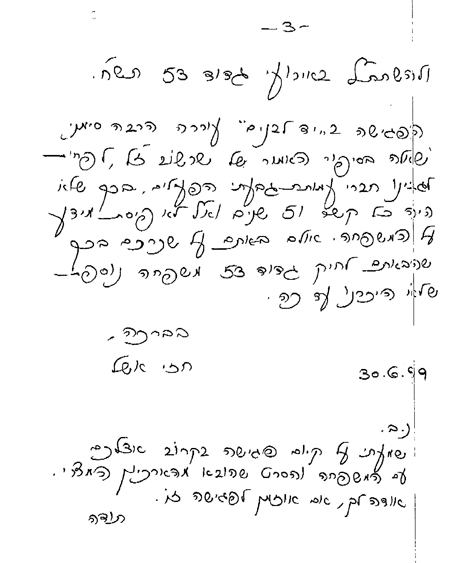 -3-
ולהשתתף באירועי גדוד 53 תש"ח.
הפגישה ב"יד לבנים" עוררה הרבה סימני
שאלה בסיפור האמור של שרשוב ז"ל, לפחות
לגבינו חברי עמותת גבעתי הפועלים, בכך שלא
היה כל קשר 51 שנים ואף לא פיסת מידע
על המשפחה. אולם באתם על שכרכם בכך
שהבאתם לחיק גדוד 53 משפחה נוספת
שלא היכרנו עד כה.
בברכה,
חזי אשל
30.6.99
נ.ב.
שמעתי על קיום פגישה בקרוב אצלכם
עם המשפחה והסרט שהובא מהארכיון המצרי.
אודה לך, אם אוזמן לפגישה זו.
תודה